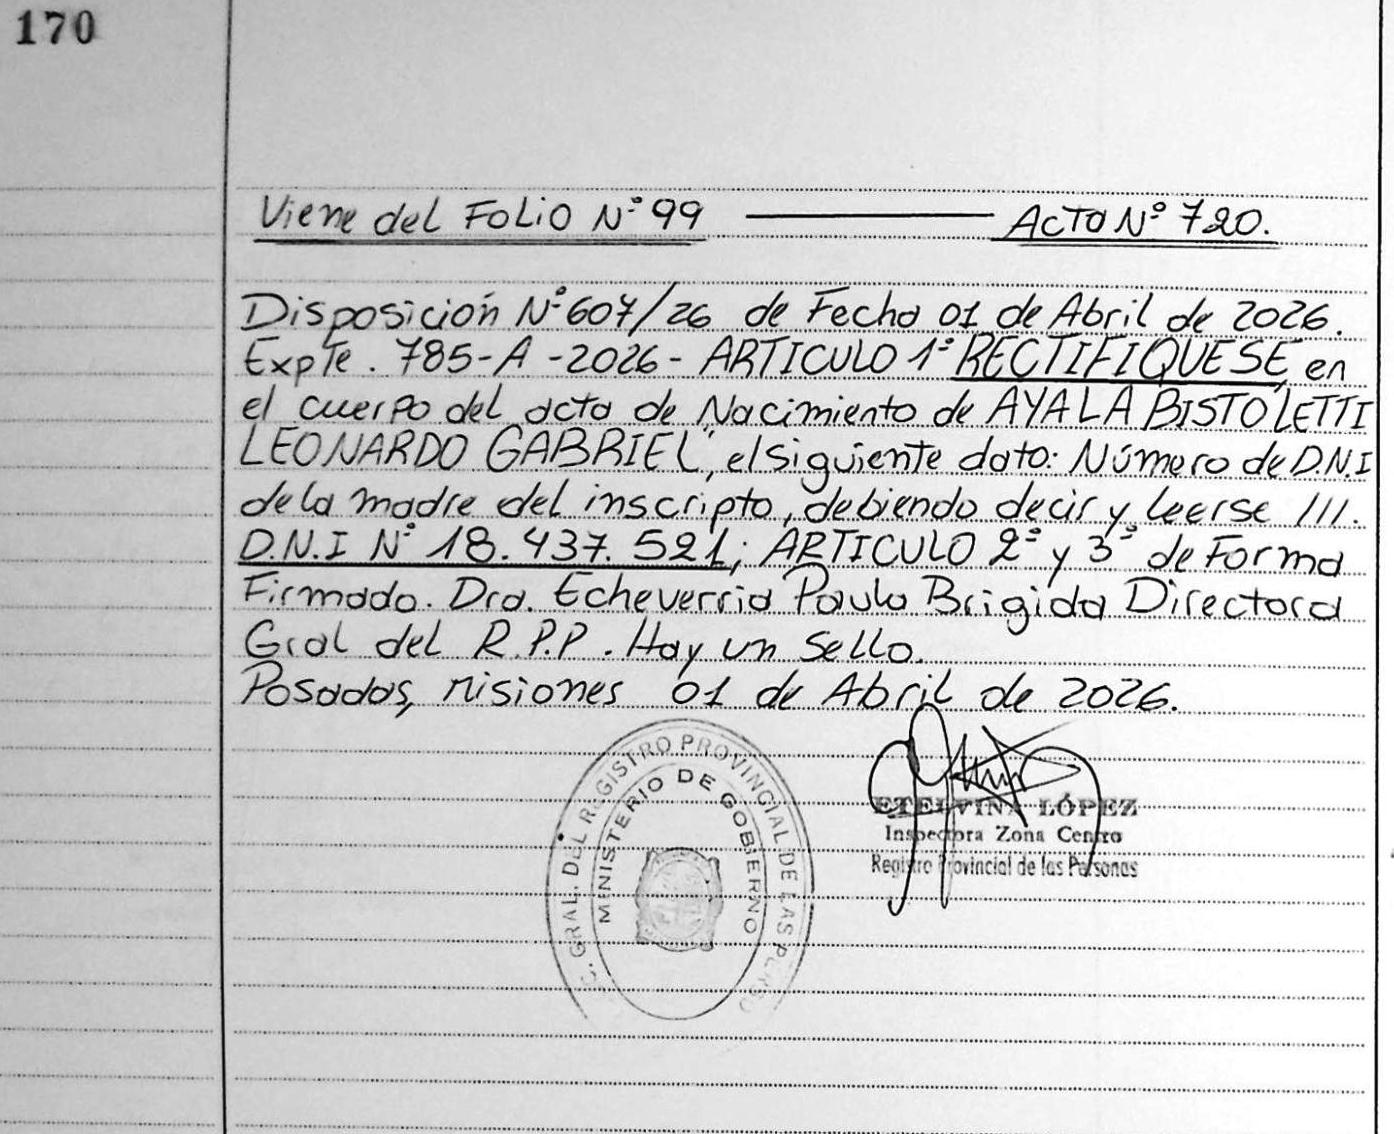 170
Viene del Folio N° 99 ——— Acta N° 720.
Disposición N° 607/26 de Fecha 01 de Abril de 2026.
Expte. 785-A-2026- ARTICULO 1° RECTIFIQUESE, en
el cuerpo del acta de Nacimiento de AYALA BISTOLETTI
LEONARDO GABRIEL", el siguiente dato: Número de D.N.I
de la madre del inscripto, debiendo decir y leerse ///.
D.N.I N° 18.437.521; ARTICULO 2° y 3° de Forma
Firmado. Dra. Echeverria Paula Brigida Directora
Gral del R.P.P. Hay un Sello.
Posadas, Misiones 01 de Abril de 2026.
GRAL. DEL REGISTRO PROVINCIAL DE LAS PERSO
MINISTERIO DE GOBIERNO
ETELVINA LÓPEZ
Inspectora Zona Centro
Registro Provincial de las Personas